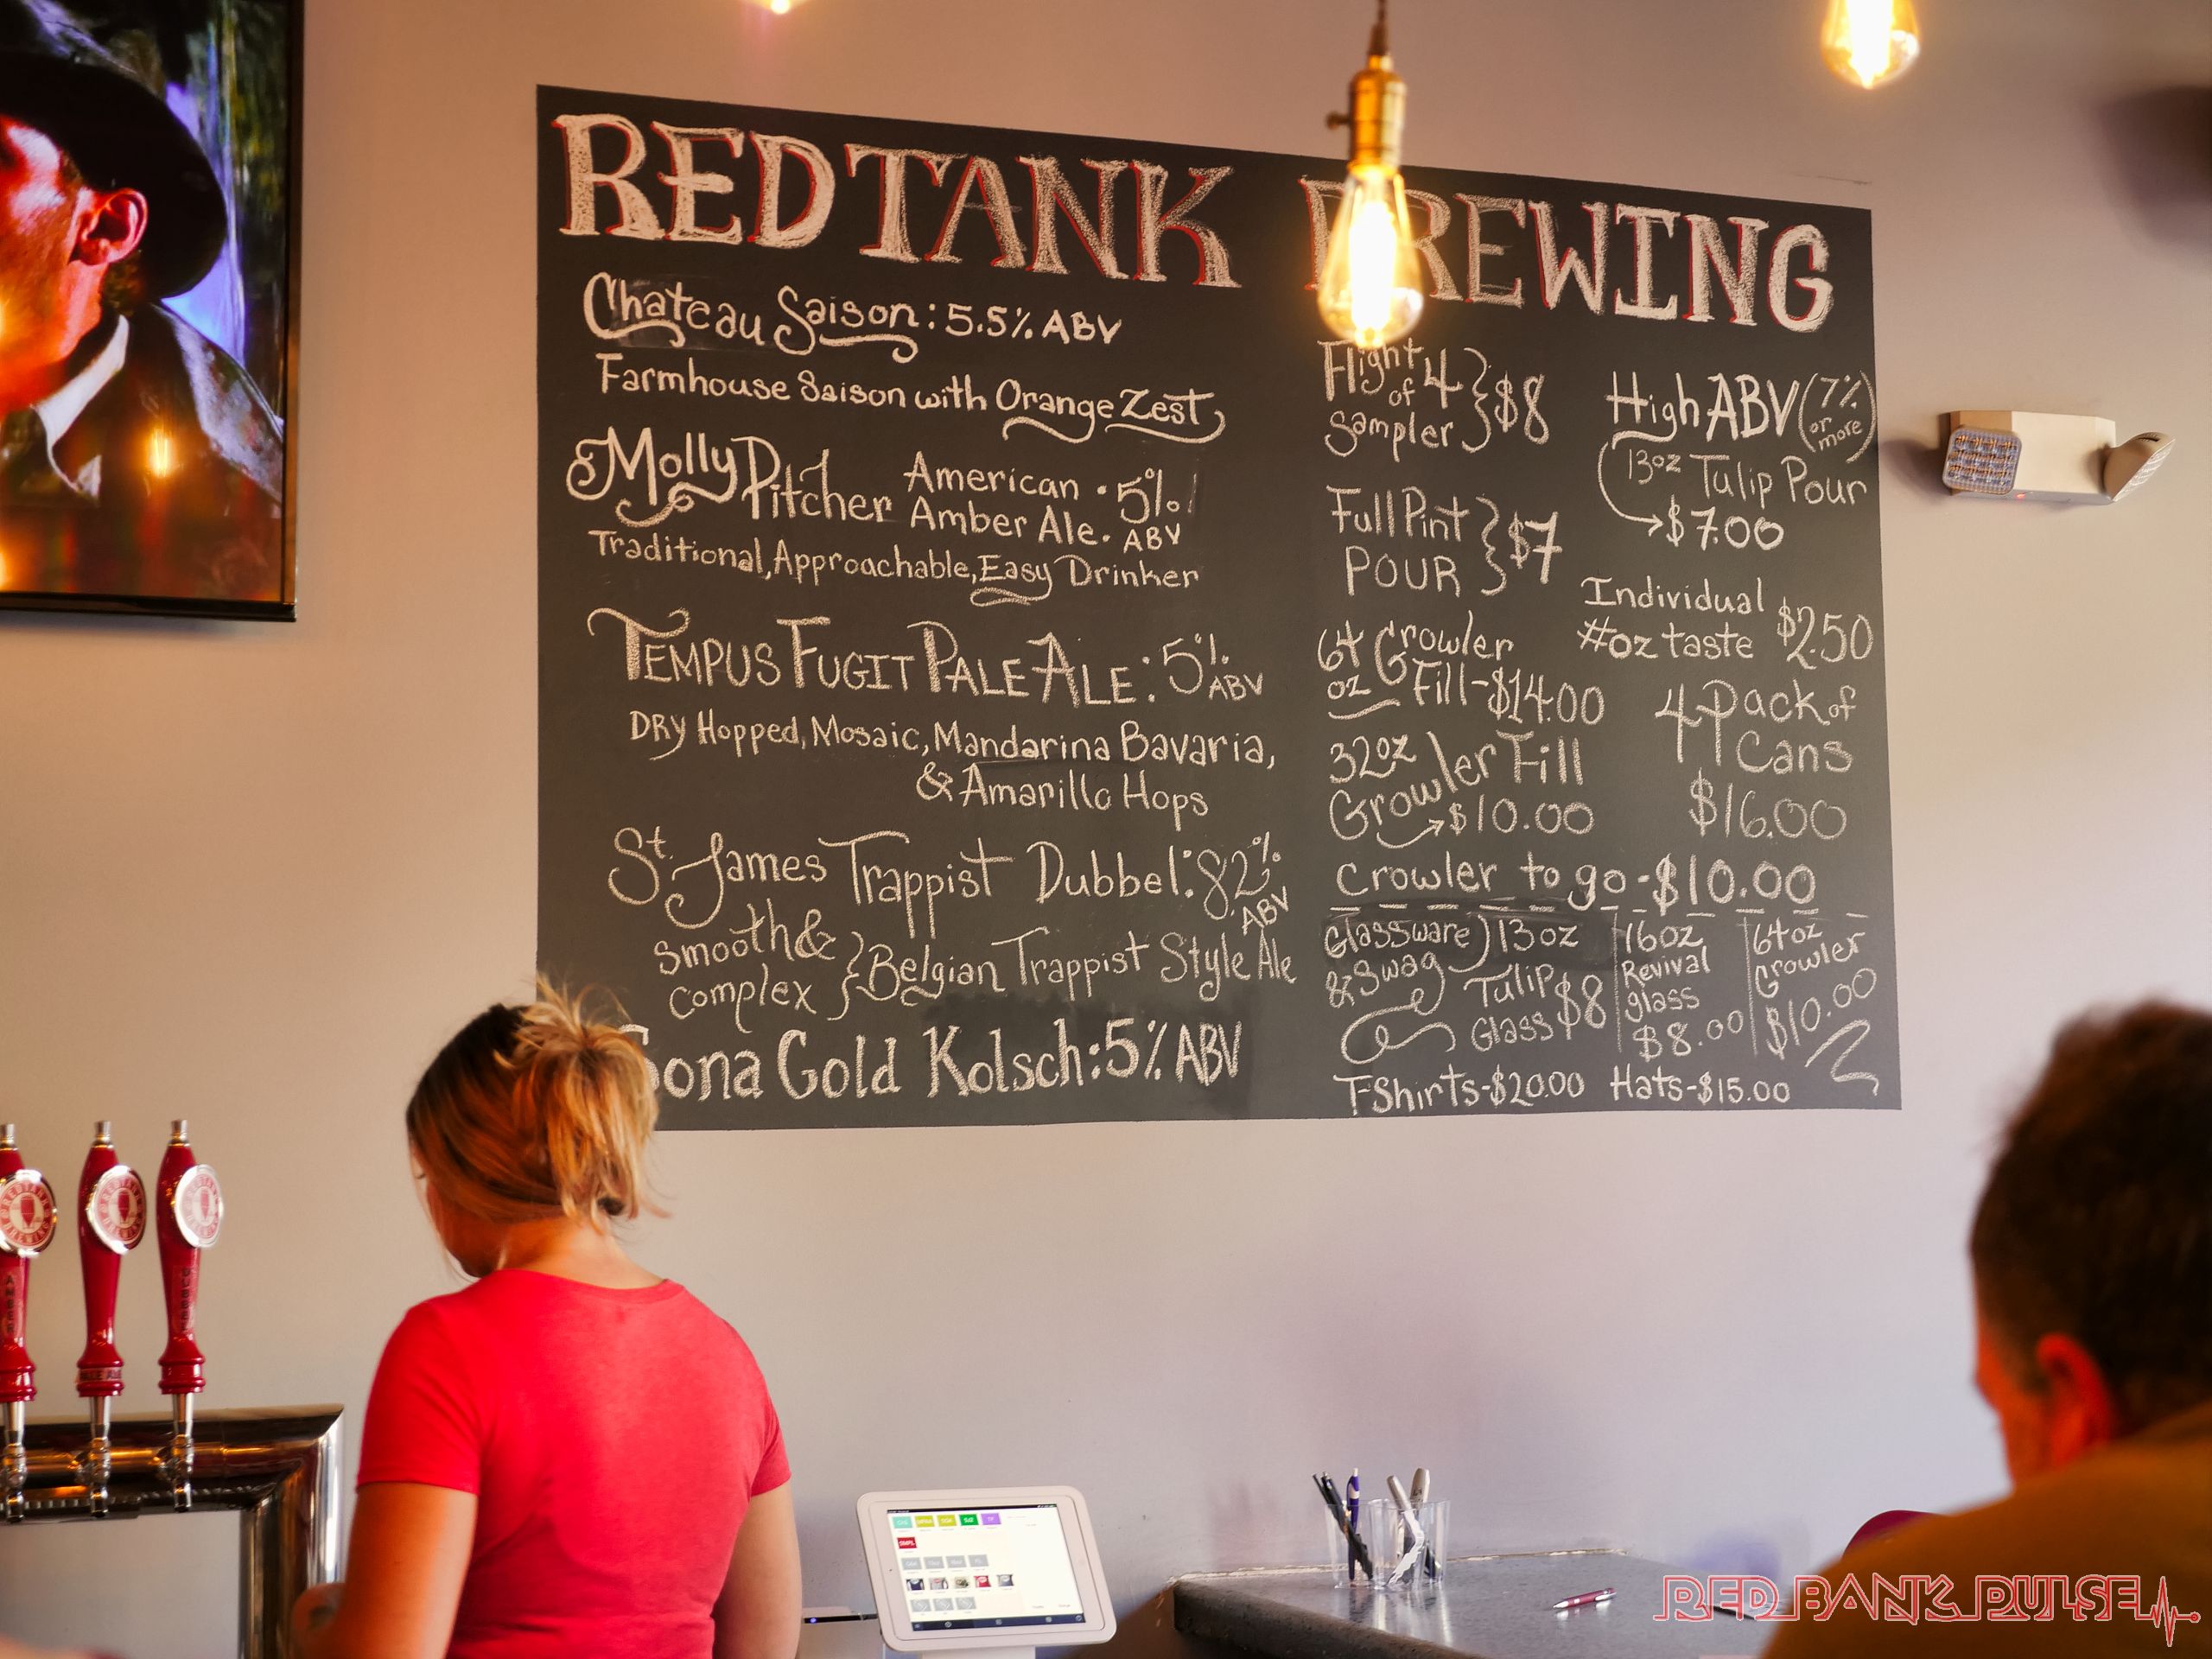 RED TANK BREWING
Chateau Saison: 5.5% ABV
Farmhouse Saison with Orange Zest
Molly Pitcher American Amber Ale • 5% ABV
Traditional, Approachable, Easy Drinker
TEMPUS FUGIT PALE ALE: 5% ABV
DRY Hopped, Mosaic, Mandarina Bavaria,
& Amarillo Hops
St. James Trappist Dubbel: 8.2% ABV
Smooth & complex } Belgian Trappist Style Ale
Sona Gold Kolsch: 5% ABV
Flight of 4 Sampler } $8
Full Pint POUR } $7
64 oz Growler Fill - $14.00
32oz Growler Fill
→ $10.00
High ABV (7% or more)
13oz Tulip Pour
→ $7.00
Individual
#oz taste $2.50
4 Pack of
Cans
$16.00
Crowler to go - $10.00
Glassware & Swag
13oz Tulip Glass $8
16oz Revival glass $8.00
64oz Growler $10.00
T-Shirts - $20.00 Hats - $15.00
AMBER
DUBBEL
RED BANK PULSE